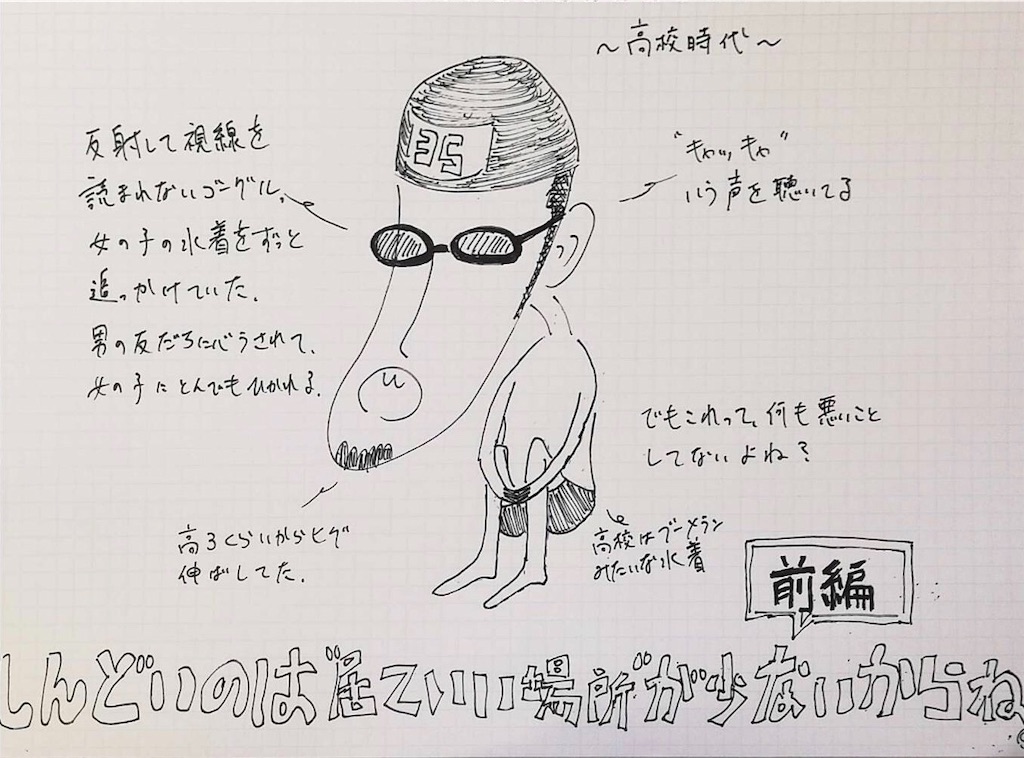 ~高校時代~
反射して視線を
読まれないゴーグル。
女の子の水着をずっと
追っかけていた。
男の友だちに心うされて、
女の子にとんでもひかれる。
"キャッ、キャ"
いう声を聴いてる
35
でもこれって、何も悪いこと
してないよね?
高3くらいからヒゲ
伸ばしてた。
高校はブーメラン
みたいな水着
前編
しんどいのは居ていい場所が少ないからね。